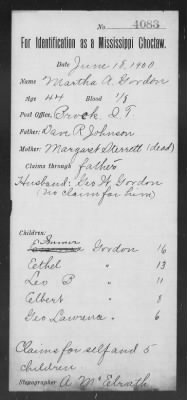 No. 4083
For Identification as a Mississippi Choctaw.
Date June 18, 1900
Name Martha A. Gordon
Age 44 Blood 1/8
Post Office, Brock, I.T.
Father: Dave R Johnson
Mother: Margaret Sterrett (dead)
Claims through father
Husband: Geo W. Gordon
(no claim for him)
Children:
Gordon 16
Eethel " 13
Leo B " 11
Elbert " 8
Geo Lawrence " 6
Claims for self and 5
children
Stenographer A. McElrath